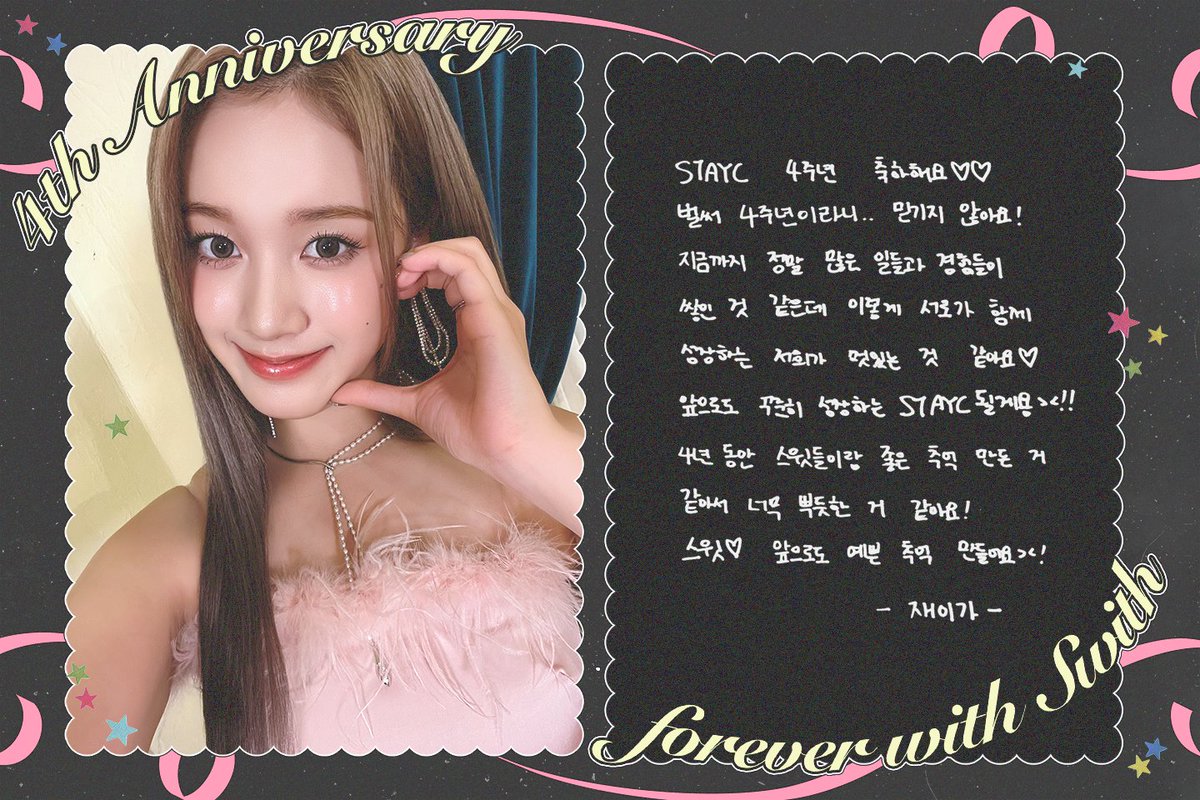 4th Anniversary
STAYC 4주년 축하해요♡♡
벌써 4주년이라니.. 믿기지 않아요!
지금까지 정말 많은 일들과 경험들이
쌓인 것 같은데 이렇게 서로가 함께
성장하는 저희가 멋있는 것 같아요♡
앞으로도 꾸준히 성장하는 STAYC 될게용><!!
4년 동안 스윗들이랑 좋은 추억 만든 거
같아서 너무 뿌듯한 거 같아요!
스윗♡ 앞으로도 예쁜 추억 만들어요><!
- 재이가 -
forever with Swith